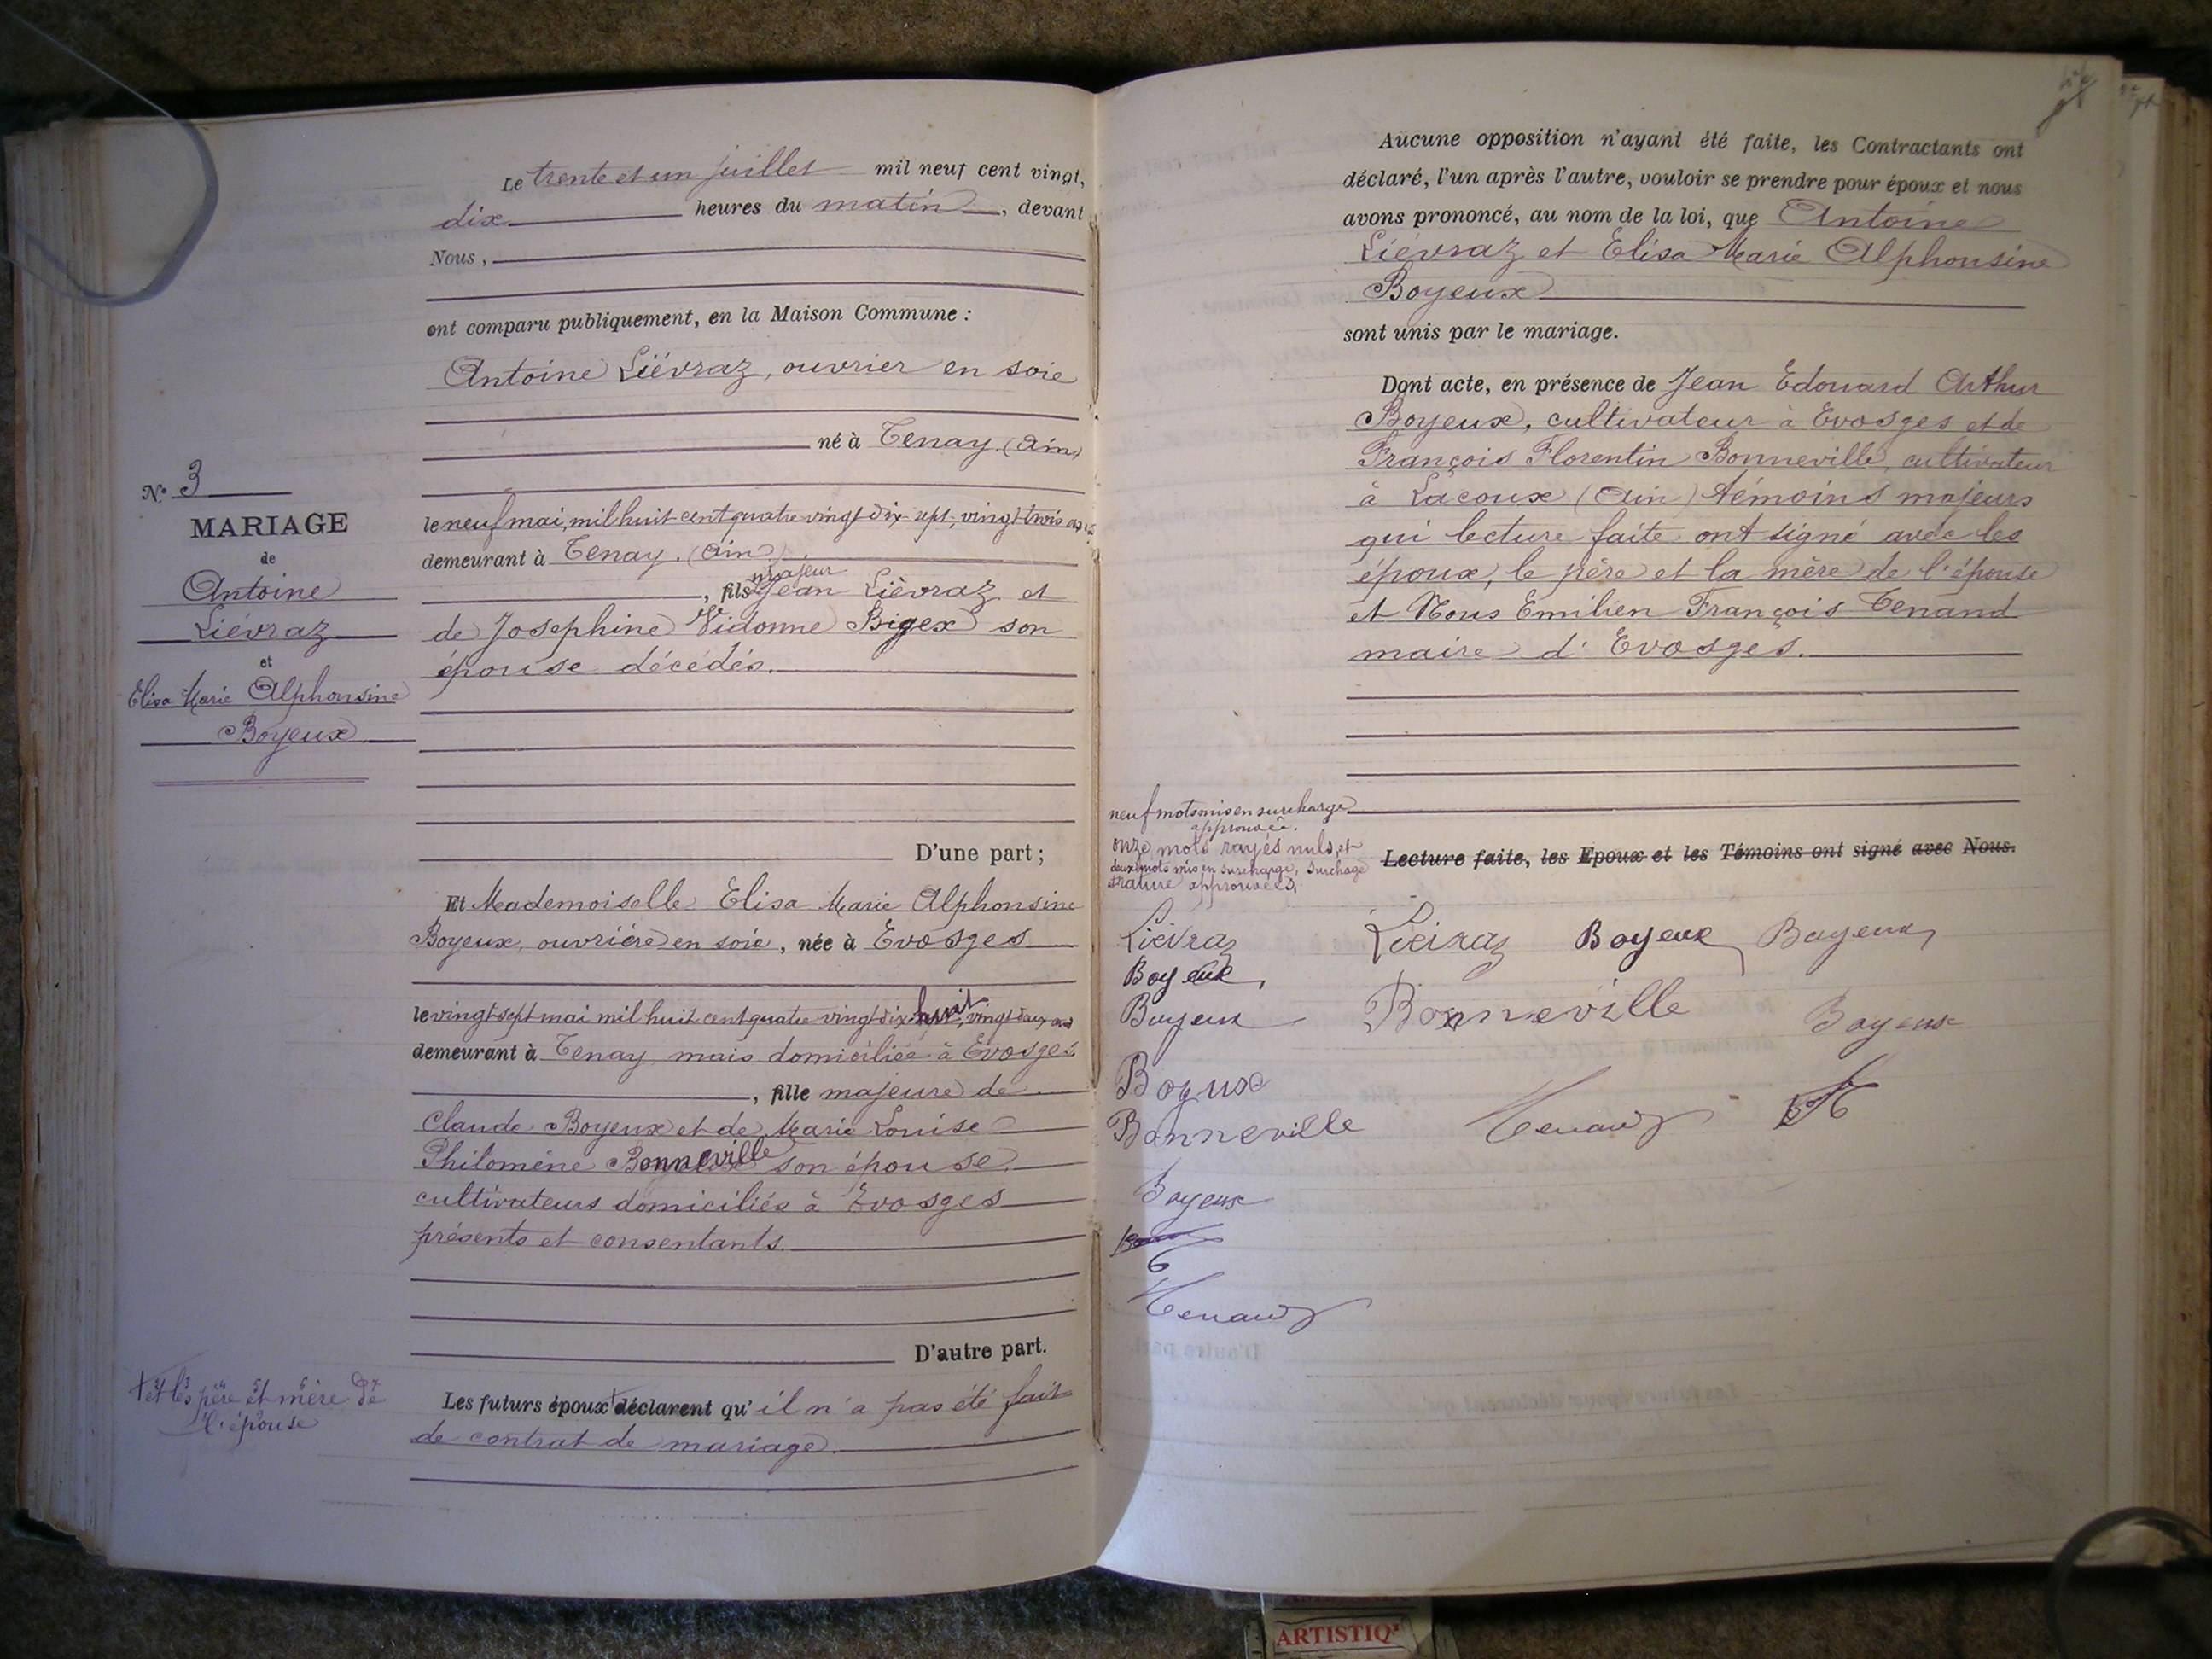 N° 3
MARIAGE
de
Antoine
Liévraz
et
Elisa Marie Alphonsine
Boyeux
Le trente et un juillet mil neuf cent vingt,
dix heures du matin, devant
Nous,
ont comparu publiquement, en la Maison Commune :
Antoine Liévraz, ouvrier en soie
né à Tenay (Ain)
le neuf mai, mil huit cent quatre vingt dix-sept, vingt trois ans
demeurant à Tenay. (Ain).
majeur
, fils Jean Liévraz et
de Josephine Vidonne Bigex son
épouse décédés.
D'une part ;
Et Mademoiselle Elisa Marie Alphonsine
Boyeux, ouvrière en soie, née à Evosges
le vingt-sept mai mil huit cent quatre vingt dix-huit, vingt deux ans
demeurant à Tenay mais domiciliée à Evosges
, fille majeure de
Claude Boyeux et de Marie Louise
Philomène Bonneville son épouse.
cultivateurs domiciliés à Evosges
présents et consentants.
D'autre part.
+ et les père et mère de
l'épouse
Les futurs époux + déclarent qu'il n'a pas été fait
de contrat de mariage.
Aucune opposition n'ayant été faite, les Contractants ont
déclaré, l'un après l'autre, vouloir se prendre pour époux et nous
avons prononcé, au nom de la loi, que Antoine
Liévraz et Elisa Marie Alphonsine
Boyeux
sont unis par le mariage.
Dont acte, en présence de Jean Edouard Arthur
Boyeux, cultivateur à Evosges et de
François Florentin Bonneville, cultivateur
à Lacoux (Ain) témoins majeurs
qui lecture faite ont signé avec les
époux, le père et la mère de l'épouse
et Nous Emilien François Tenand
maire d'Evosges.
neuf mots mis en surcharge
approuvée.
onze mots rayés nuls, et
deux mots mis en surcharge, surchage
et rature approuvées.
Lecture faite, les Epoux et les Témoins ont signé avec Nous.
Liévraz Liévraz Boyeux Boyeux
Boyeux
Boyeux Bonneville Boyeux
Boyeux
Bonneville Tenand
Boyeux
Tenand
ARTISTIQ